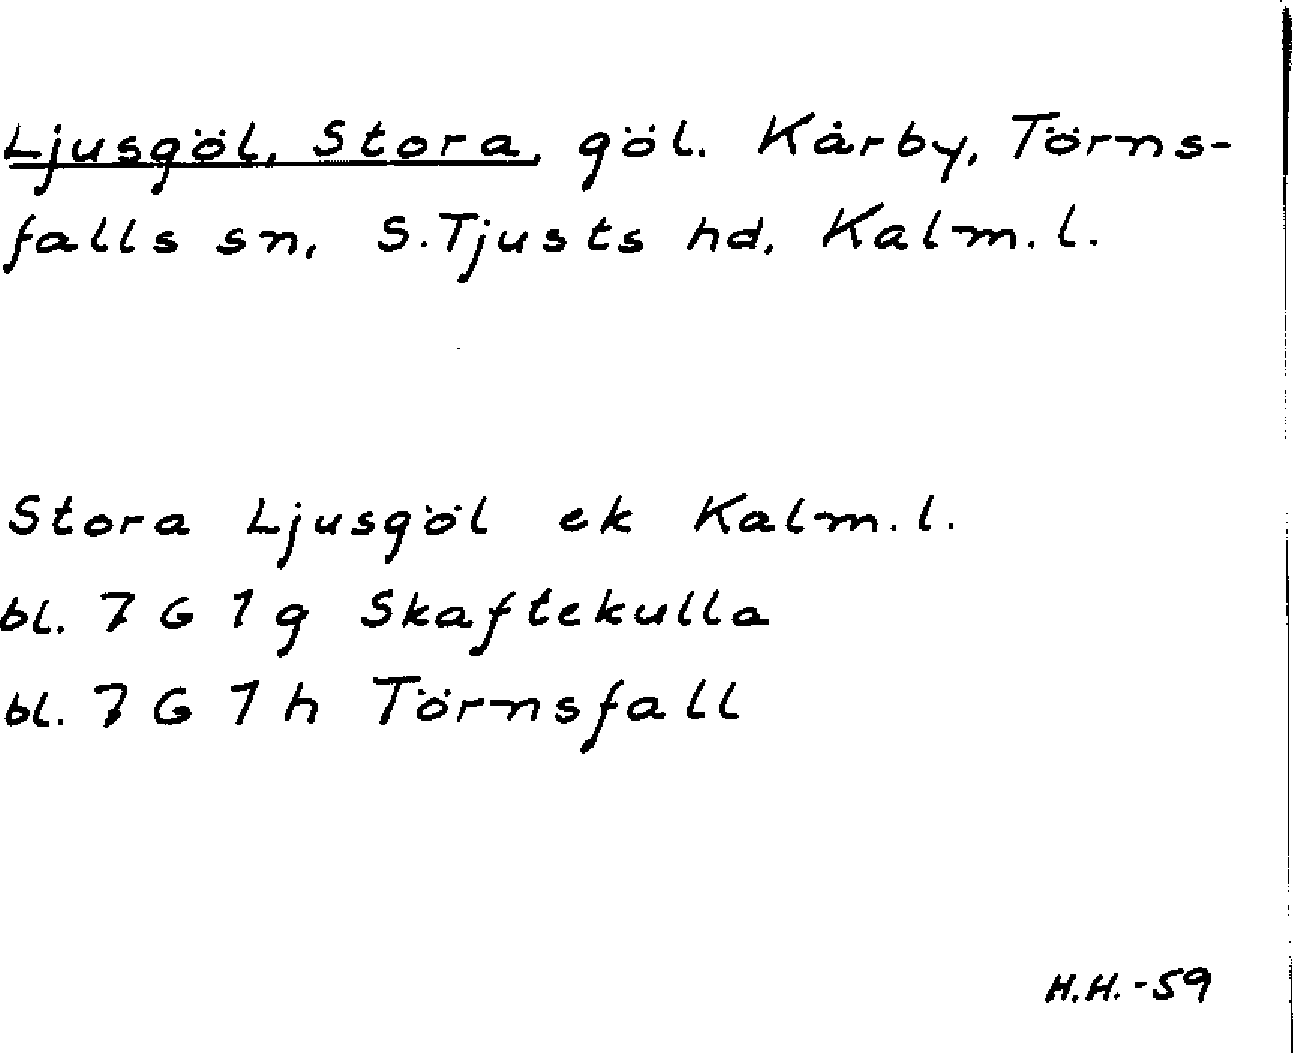 Ljusgöl, Stora, göl. Kårby, Törns-
falls sn, S. Tjusts hd, Kalm. l.
Stora Ljusgöl ek Kalm. l.
bl. 7 G 1 g Skaftekulla
bl. 7 G 1 h Törnsfall
H.H. -59